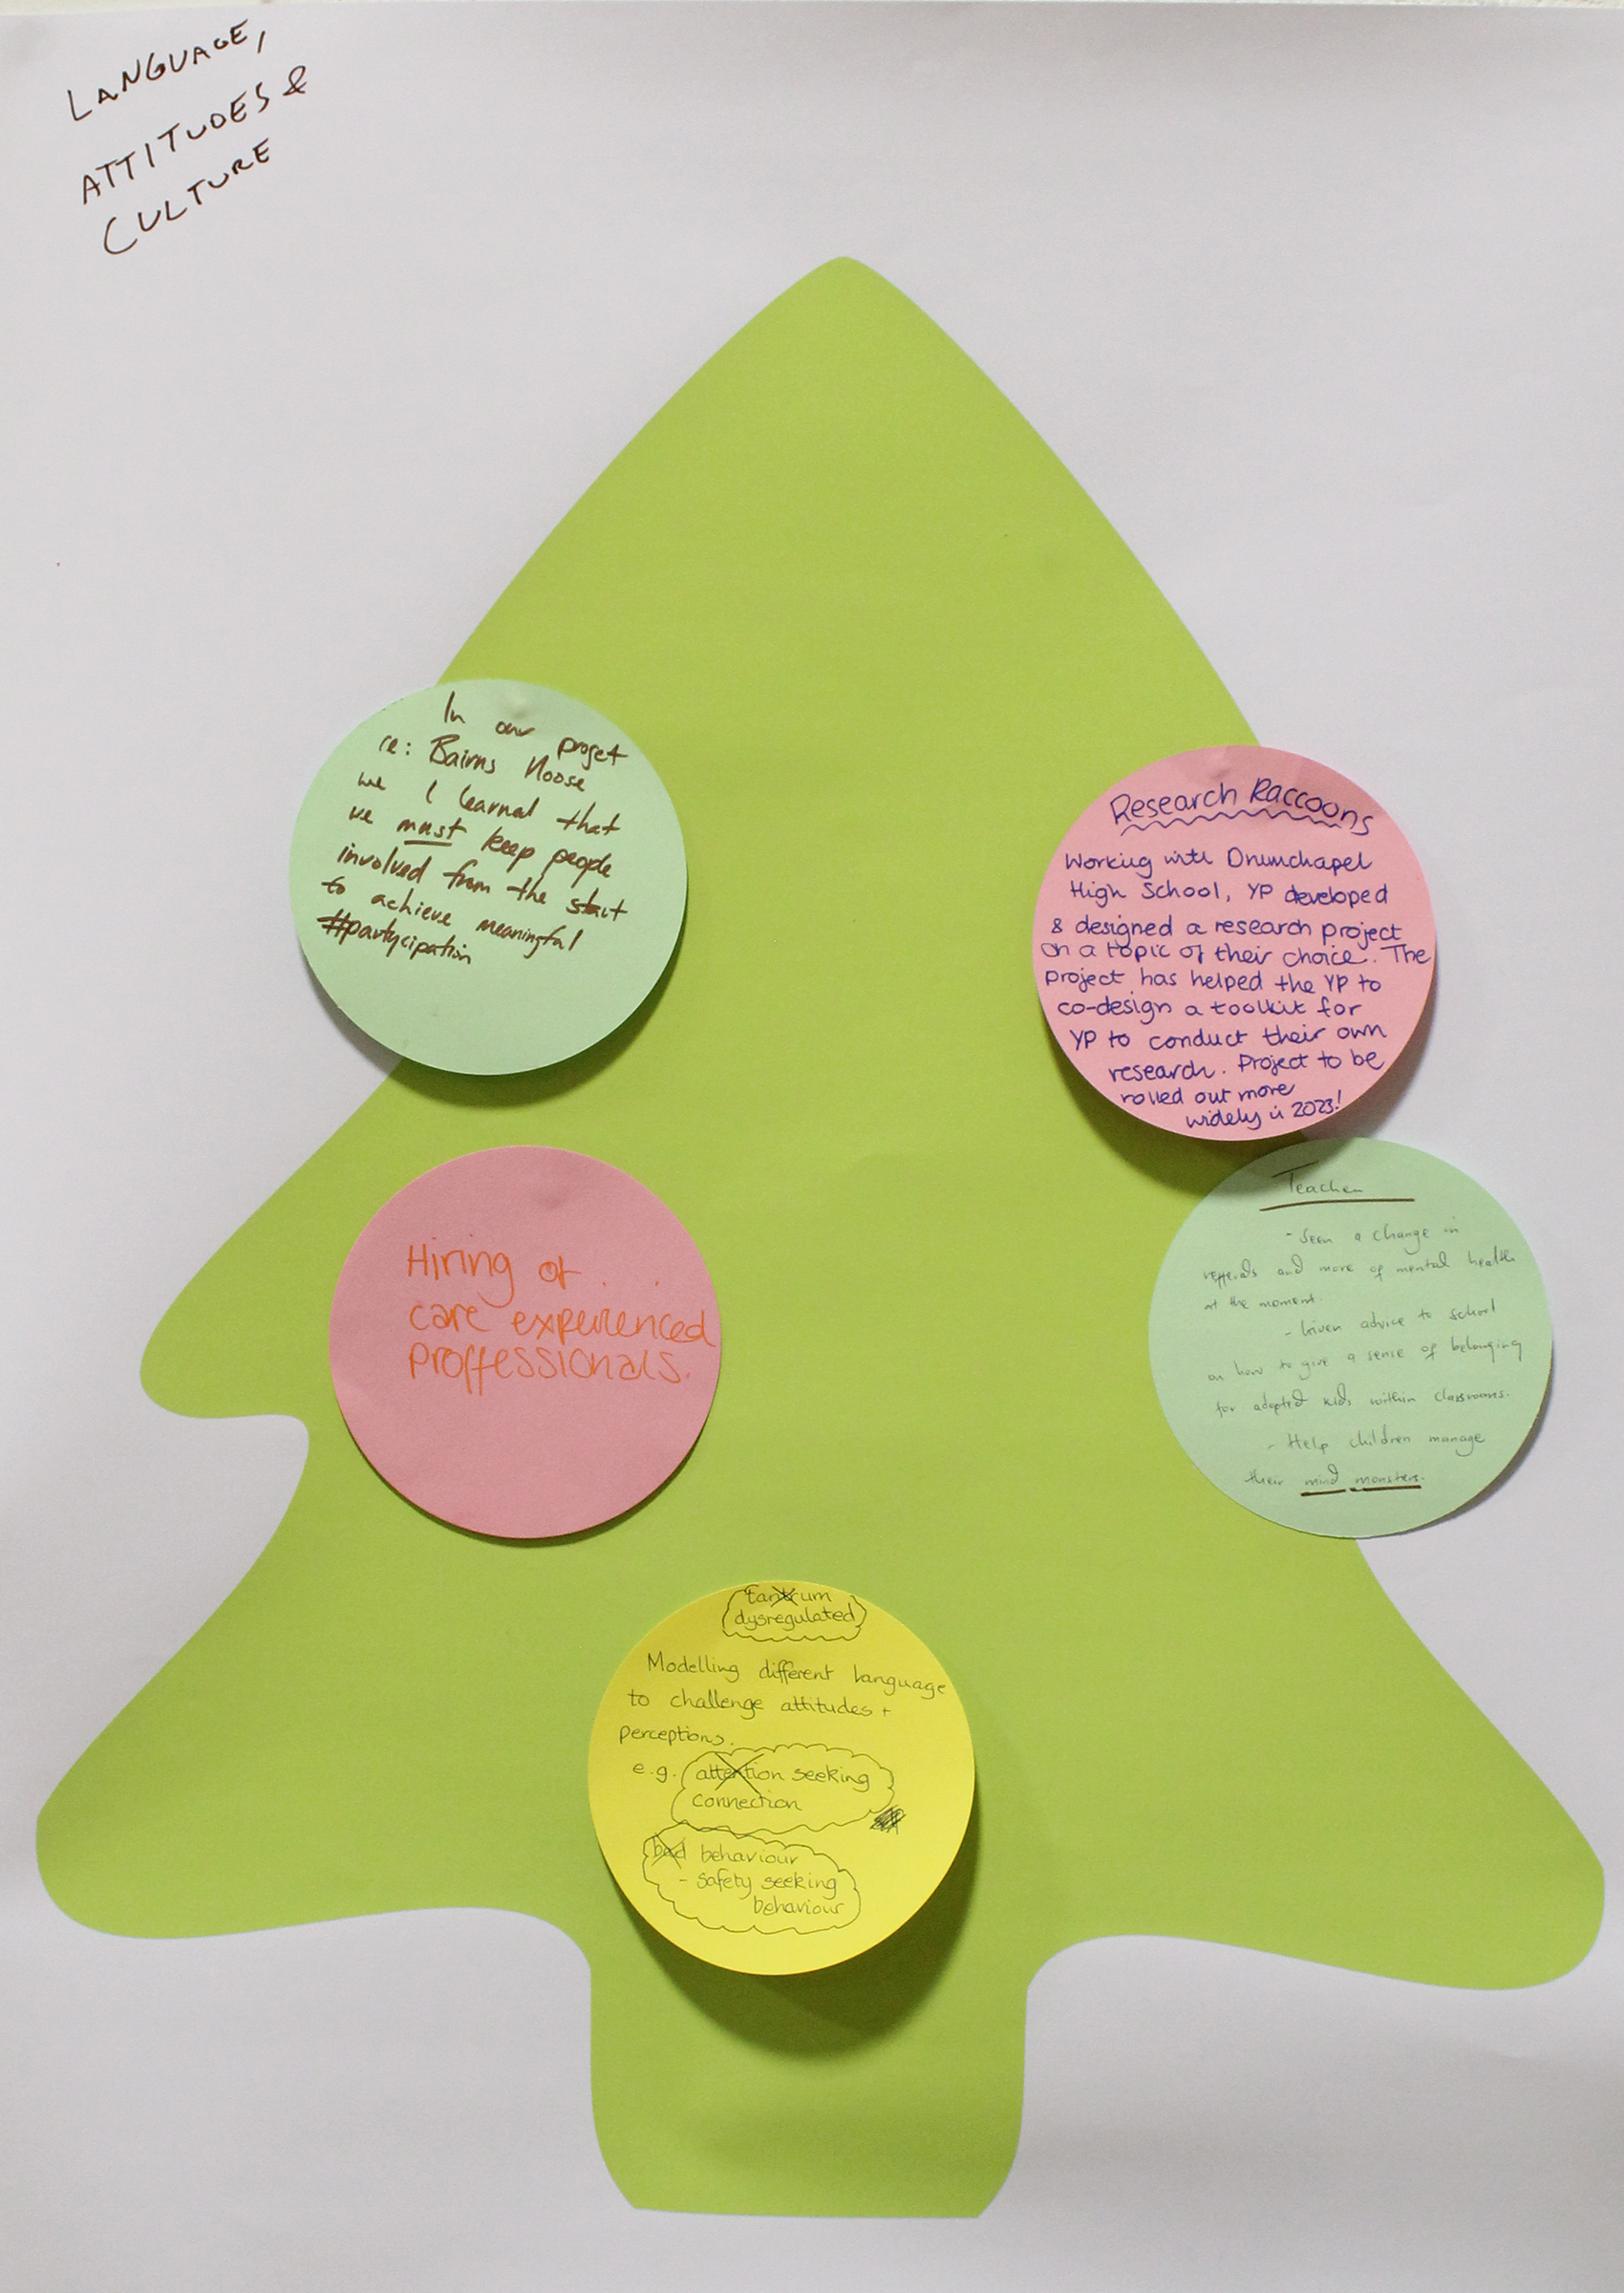 LANGUAGE,
ATTITUDES &
CULTURE
In our projet
re: Bairns Hoose
we / learned that
we must keep people
involved from the start
to achieve meaningful
#partycipation
Research Raccoons
Working with Drumchapel
High School, YP developed
& designed a research project
on a topic of their choice. The
project has helped the YP to
co-design a toolkit for
YP to conduct their own
research. Project to be
rolled out more
widely in 2023!
Hiring of
care experienced
proffessionals.
Teacher
- Seen a change in
refferals and more of mental health
at the moment.
- Given advice to school
on how to give a sense of belonging
for adopted kids within classrooms.
- Help children manage
their mind monsters.
tantrum
dysregulated
Modelling different language
to challenge attitudes +
perceptions.
e.g. attention seeking
connection
bad behaviour
- safety seeking
behaviour